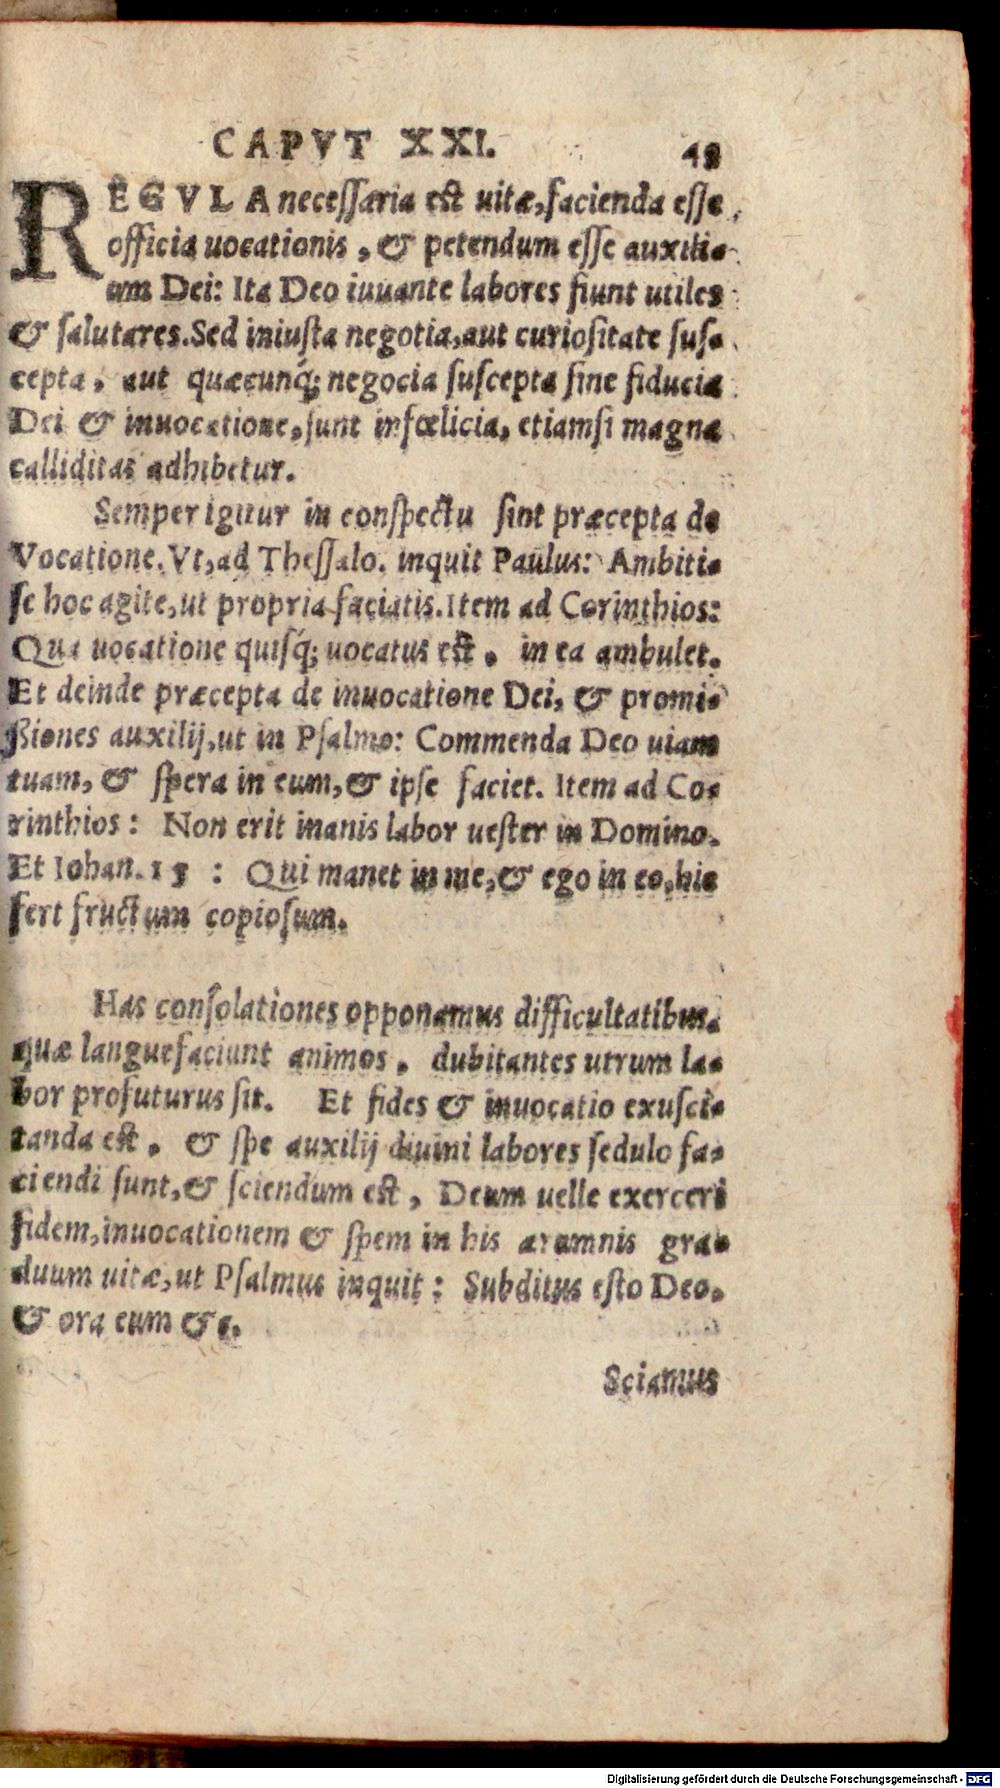 CAPVT XXI. 48
REGVLA neceſſaria est uitæ, facienda eſſe
officia uocationis, & petendum eſſe auxili-
um Dei: Ita Deo iuuante labores fiunt utiles
& ſalutares. Sed iniuſta negotia, aut curioſitate ſuſ-
cepta, aut quæcunq́; negocia ſuſcepta ſine fiducia
Dei & inuocatione, ſunt infœlicia, etiamſi magna
calliditas adhibetur.
Semper igitur in conſpectu ſint præcepta de
Vocatione. Vt, ad Theſſalo. inquit Paulus: Ambiti-
ſe hoc agite, ut propria faciatis. Item ad Corinthios:
Qua uocatione quiſq́; uocatus est, in ea ambulet.
Et deinde præcepta de inuocatione Dei, & promi-
ßiones auxilij, ut in Pſalmo: Commenda Deo uiam
tuam, & ſpera in eum, & ipſe faciet. Item ad Co-
rinthios: Non erit inanis labor ueſter in Domino.
Et Iohan. 15 : Qui manet in me, & ego in eo, hic
fert fructum copioſum.
Has conſolationes opponamus difficultatibus,
quæ languefaciunt animos, dubitantes utrum la-
bor profuturus ſit. Et fides & inuocatio exuſci-
tanda est, & ſpe auxilij diuini labores ſedulo fa-
ciendi ſunt, & ſciendum est, Deum uelle exerceri
fidem, inuocationem & ſpem in his ærumnis gra-
duum uitæ, ut Pſalmus inquit: Subditus eſto Deo,
& ora eum &c.
Sciamus
Digitalisierung gefördert durch die Deutsche Forschungsgemeinschaft - DFG